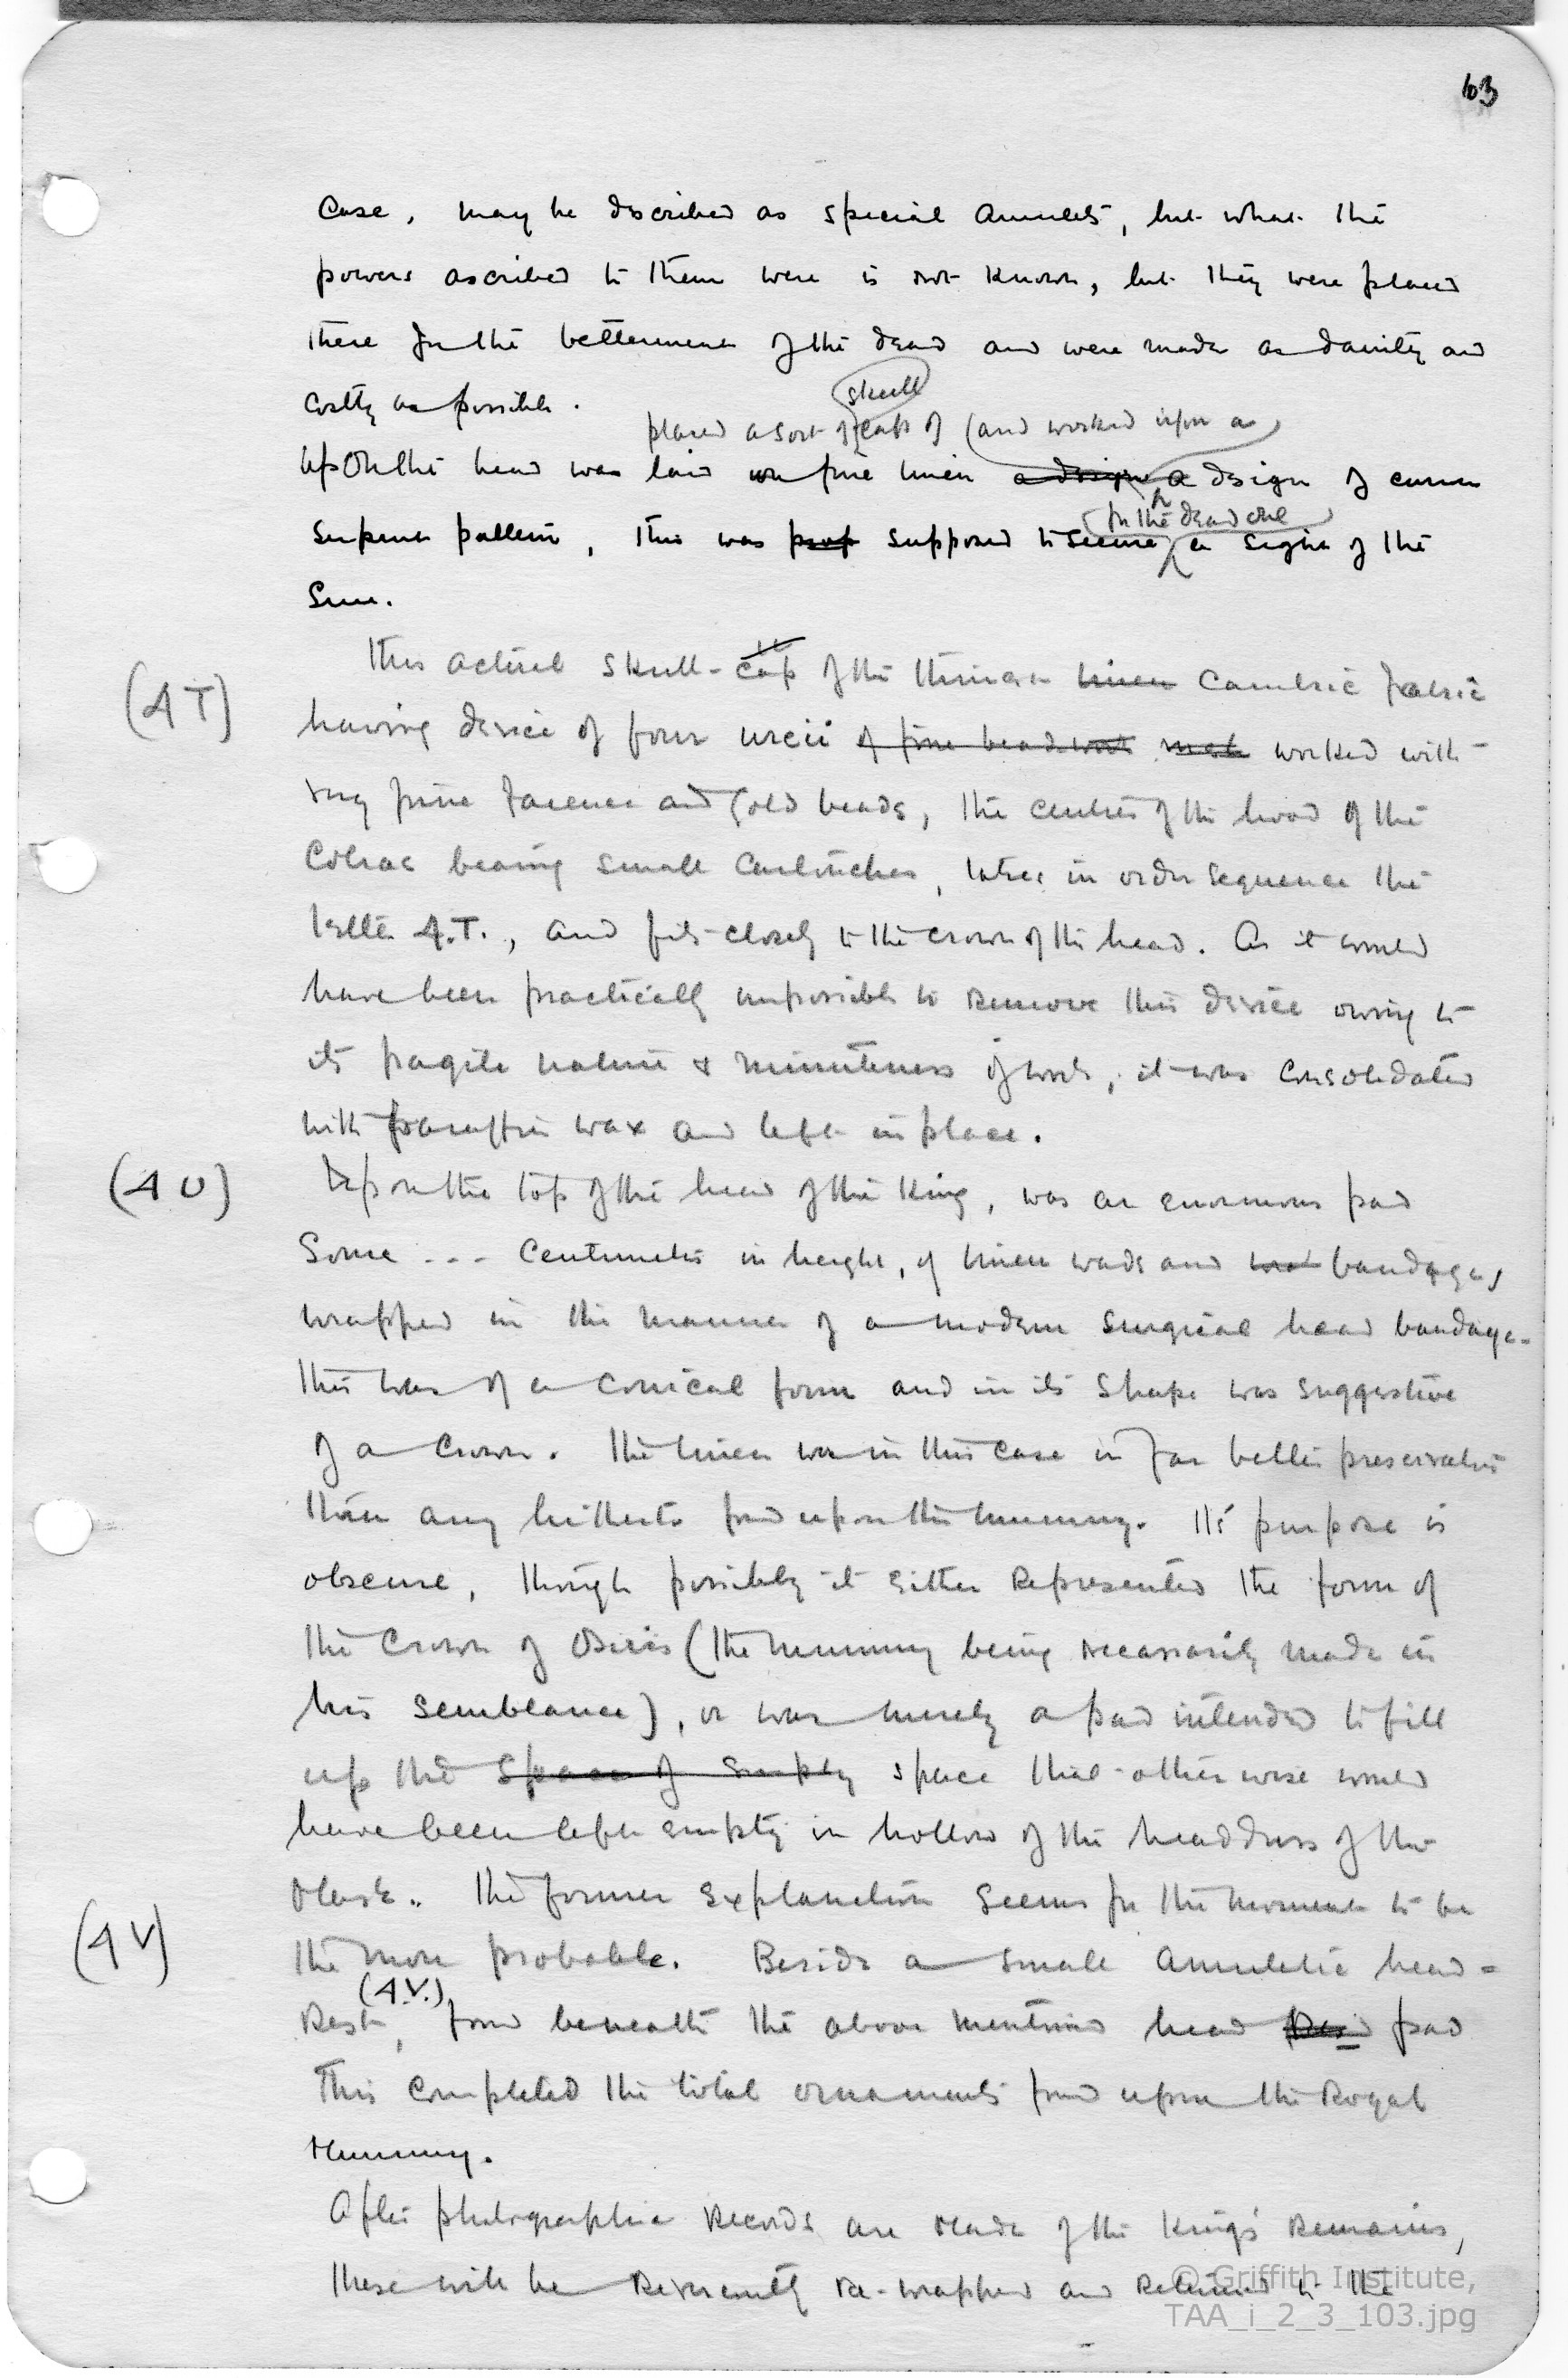 103
case, may be described as special amulets, but what the
powers ascribed to them were is not known, but they were placed
there for the betterment of the dead and were made as dainty and
costly as possible.
skull
placed a sort of cap of (and worked upon a
Upon the head was laid fine linen a design a design of
serpent pattern, this was prof supposed to secure a sight of the
for the dead one
Sun.
(4T)
This actual skull-cap of the thinnest linen cambric fabric
having device of four uraei of fine beadwork made worked with
very fine faience and gold beads, the centres of the hood of the
cobras bearing small cartouches, takes in order sequence the
letter 4.T., and fits closely to the crown of the head. As it would
have been practically impossible to remove this device owing to
its fragile nature & minuteness of work, it was consolidated
with paraffin wax and left in place.
(4U)
Upon the top of the head of the King, was an enormous pad
some --- centimetres in height, of linen wads and bandages,
wrapped in the manner of a modern surgical head bandage.
this was of a conical form and in its shape was suggestive
of a crown. The linen was in this case in far better preservation
than any hitherto found upon the mummy. Its purpose is
obscure, though possibly it either represented the form of
the Crown of Osiris (the mummy being necessarily made in
his semblance), or was merely a pad intended to fill
up the space of empty space that otherwise would
have been left empty in hollow of the headdress of the
Mask. The former explanation seems for the moment to be
(4V)
the more probable. Beside a small amuletic head-
(4.V.)
Rest, found beneath the above mentioned head pad
This completed the total ornaments found upon the Royal
Mummy.
After photographic records are made of the King's remains,
these will be reverently re-wrapped and returned to the
© Griffith Institute,
TAA_i_2_3_103.jpg